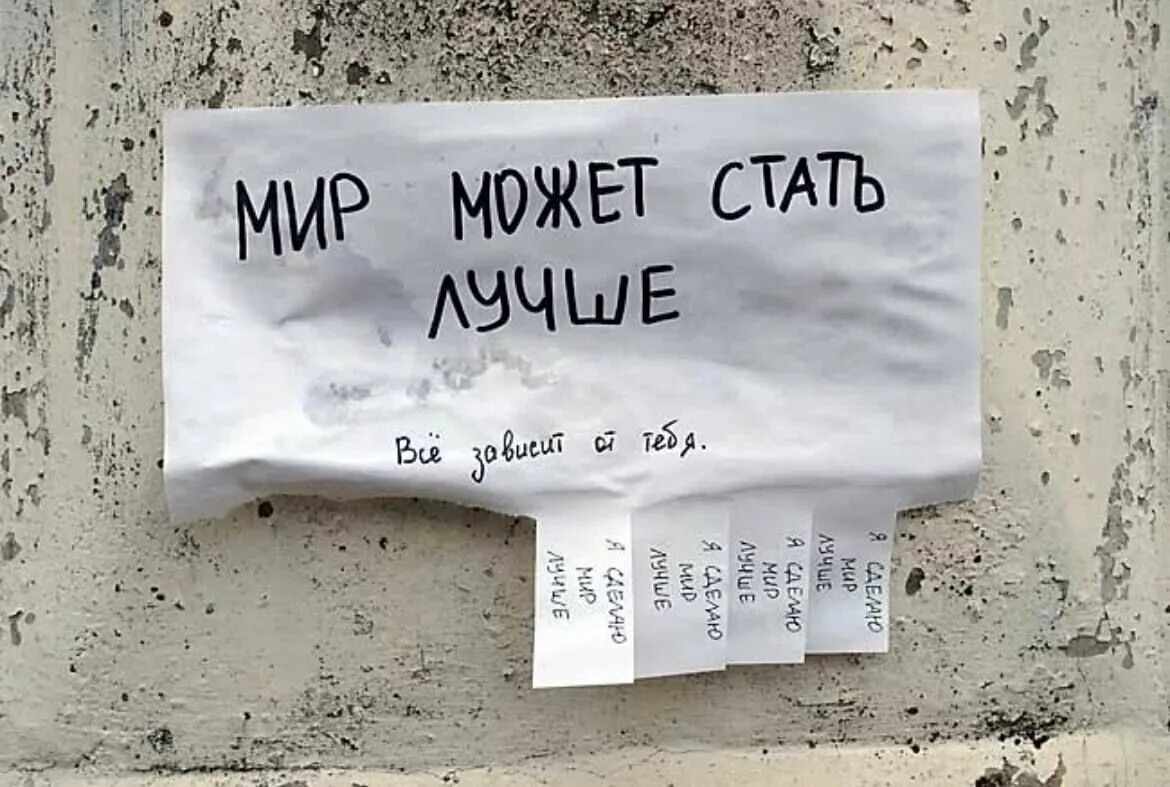 МИР МОЖЕТ СТАТЬ
ЛУЧШЕ
Всё зависит от тебя.
Я СДЕЛАЮ
МИР
ЛУЧШЕ
Я СДЕЛАЮ
МИР
ЛУЧШЕ
Я СДЕЛАЮ
МИР
ЛУЧШЕ
Я СДЕЛАЮ
МИР
ЛУЧШЕ